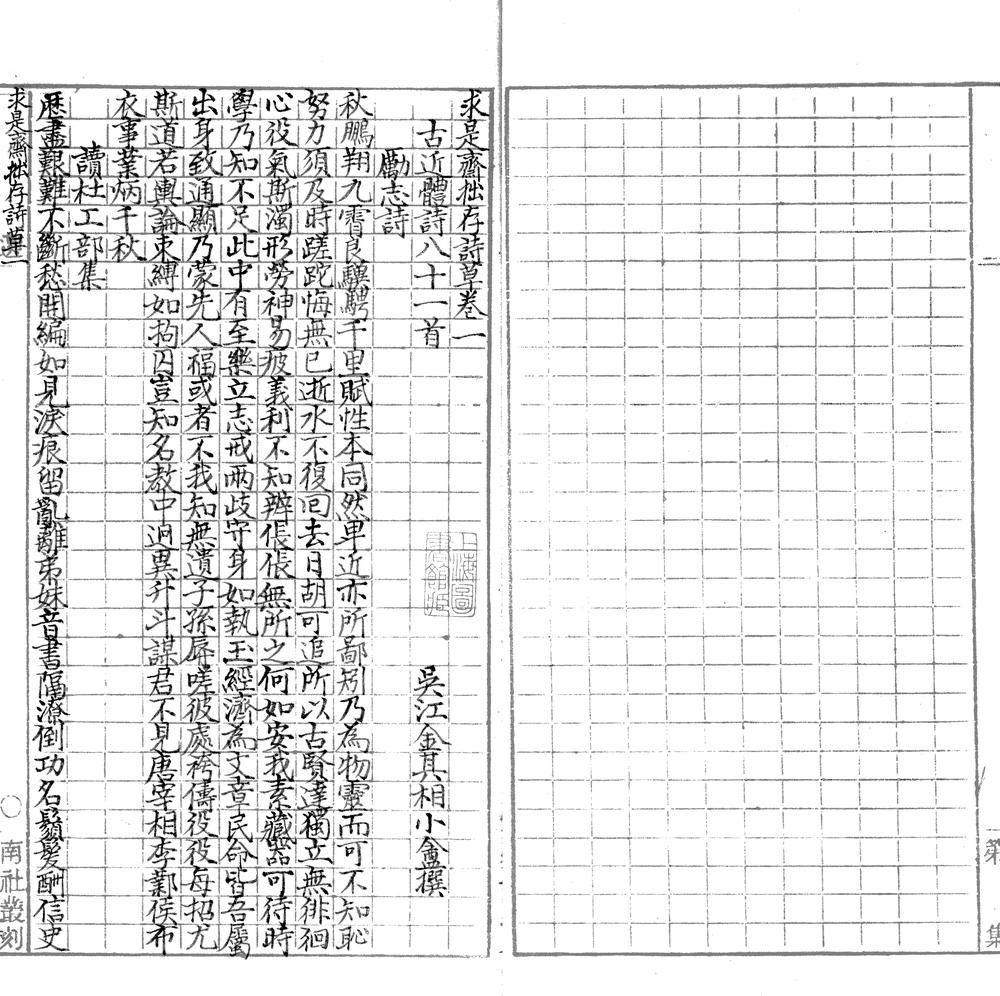 求是齋拙存詩草卷一
古近體詩八十一首
吳江金其相小𥁕撰
勵志詩
秋鵬翔九霄良驥騁千里賦性本同然卑近亦所鄙矧乃為物靈而可不知恥
努力須及時蹉跎悔無已逝水不復回去日胡可追所以古賢達獨立無徘徊
心役氣斯濁形勞神易疲義利不知辨倀倀無所之何如安我素藏器可待時
學乃知不足此中有至樂立志戒兩歧守身如執玉經濟為文章民命皆吾屬
出身致通顯乃蒙先人福或者不我知無遺子孫辱嗟彼處袴儔役役每招尤
斯道若輿論束縛如拘囚豈知名教中迥異升斗謀君不見唐宰相李鄴侯布
衣事業炳千秋
讀杜工部集
歷盡艱難不斷愁開編如見淚痕留亂離弟妹音書隔潦倒功名鬚髮酬信史
求是齋拙存詩草
一
南社叢刻
上海圖書館藏
集